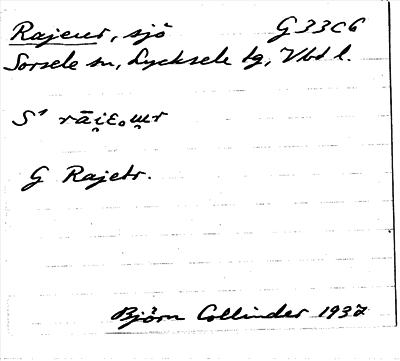 Rajeur, sjö G33C6
Sorsele sn, Lycksele tg, Vbd l.
S¹ rāi̯ɛ.ɯ̯r
G Rajetr.
Björn Collinder 1937